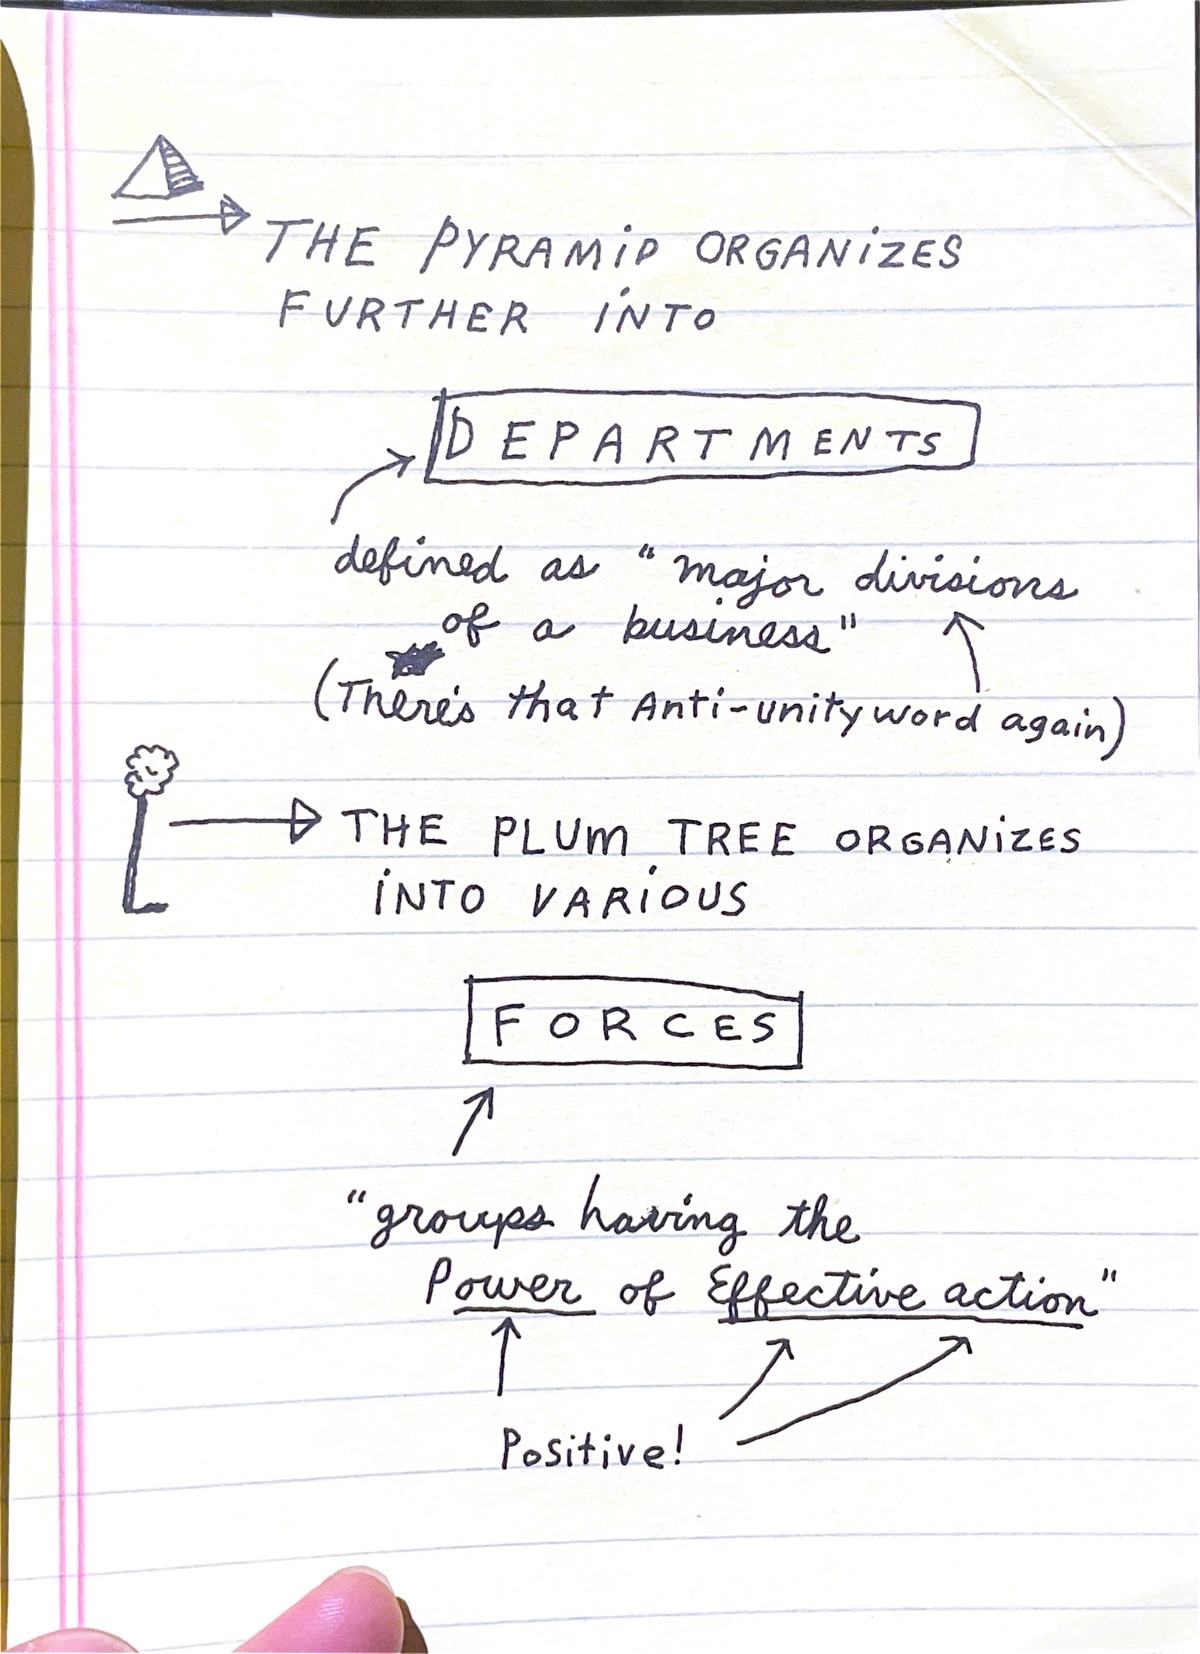 THE PYRAMID ORGANIZES
FURTHER INTO
DEPARTMENTS
defined as "major divisions
of a business"
(There's that Anti-unity word again)
THE PLUM TREE ORGANIZES
INTO VARIOUS
FORCES
"groups having the
Power of Effective action"
Positive!